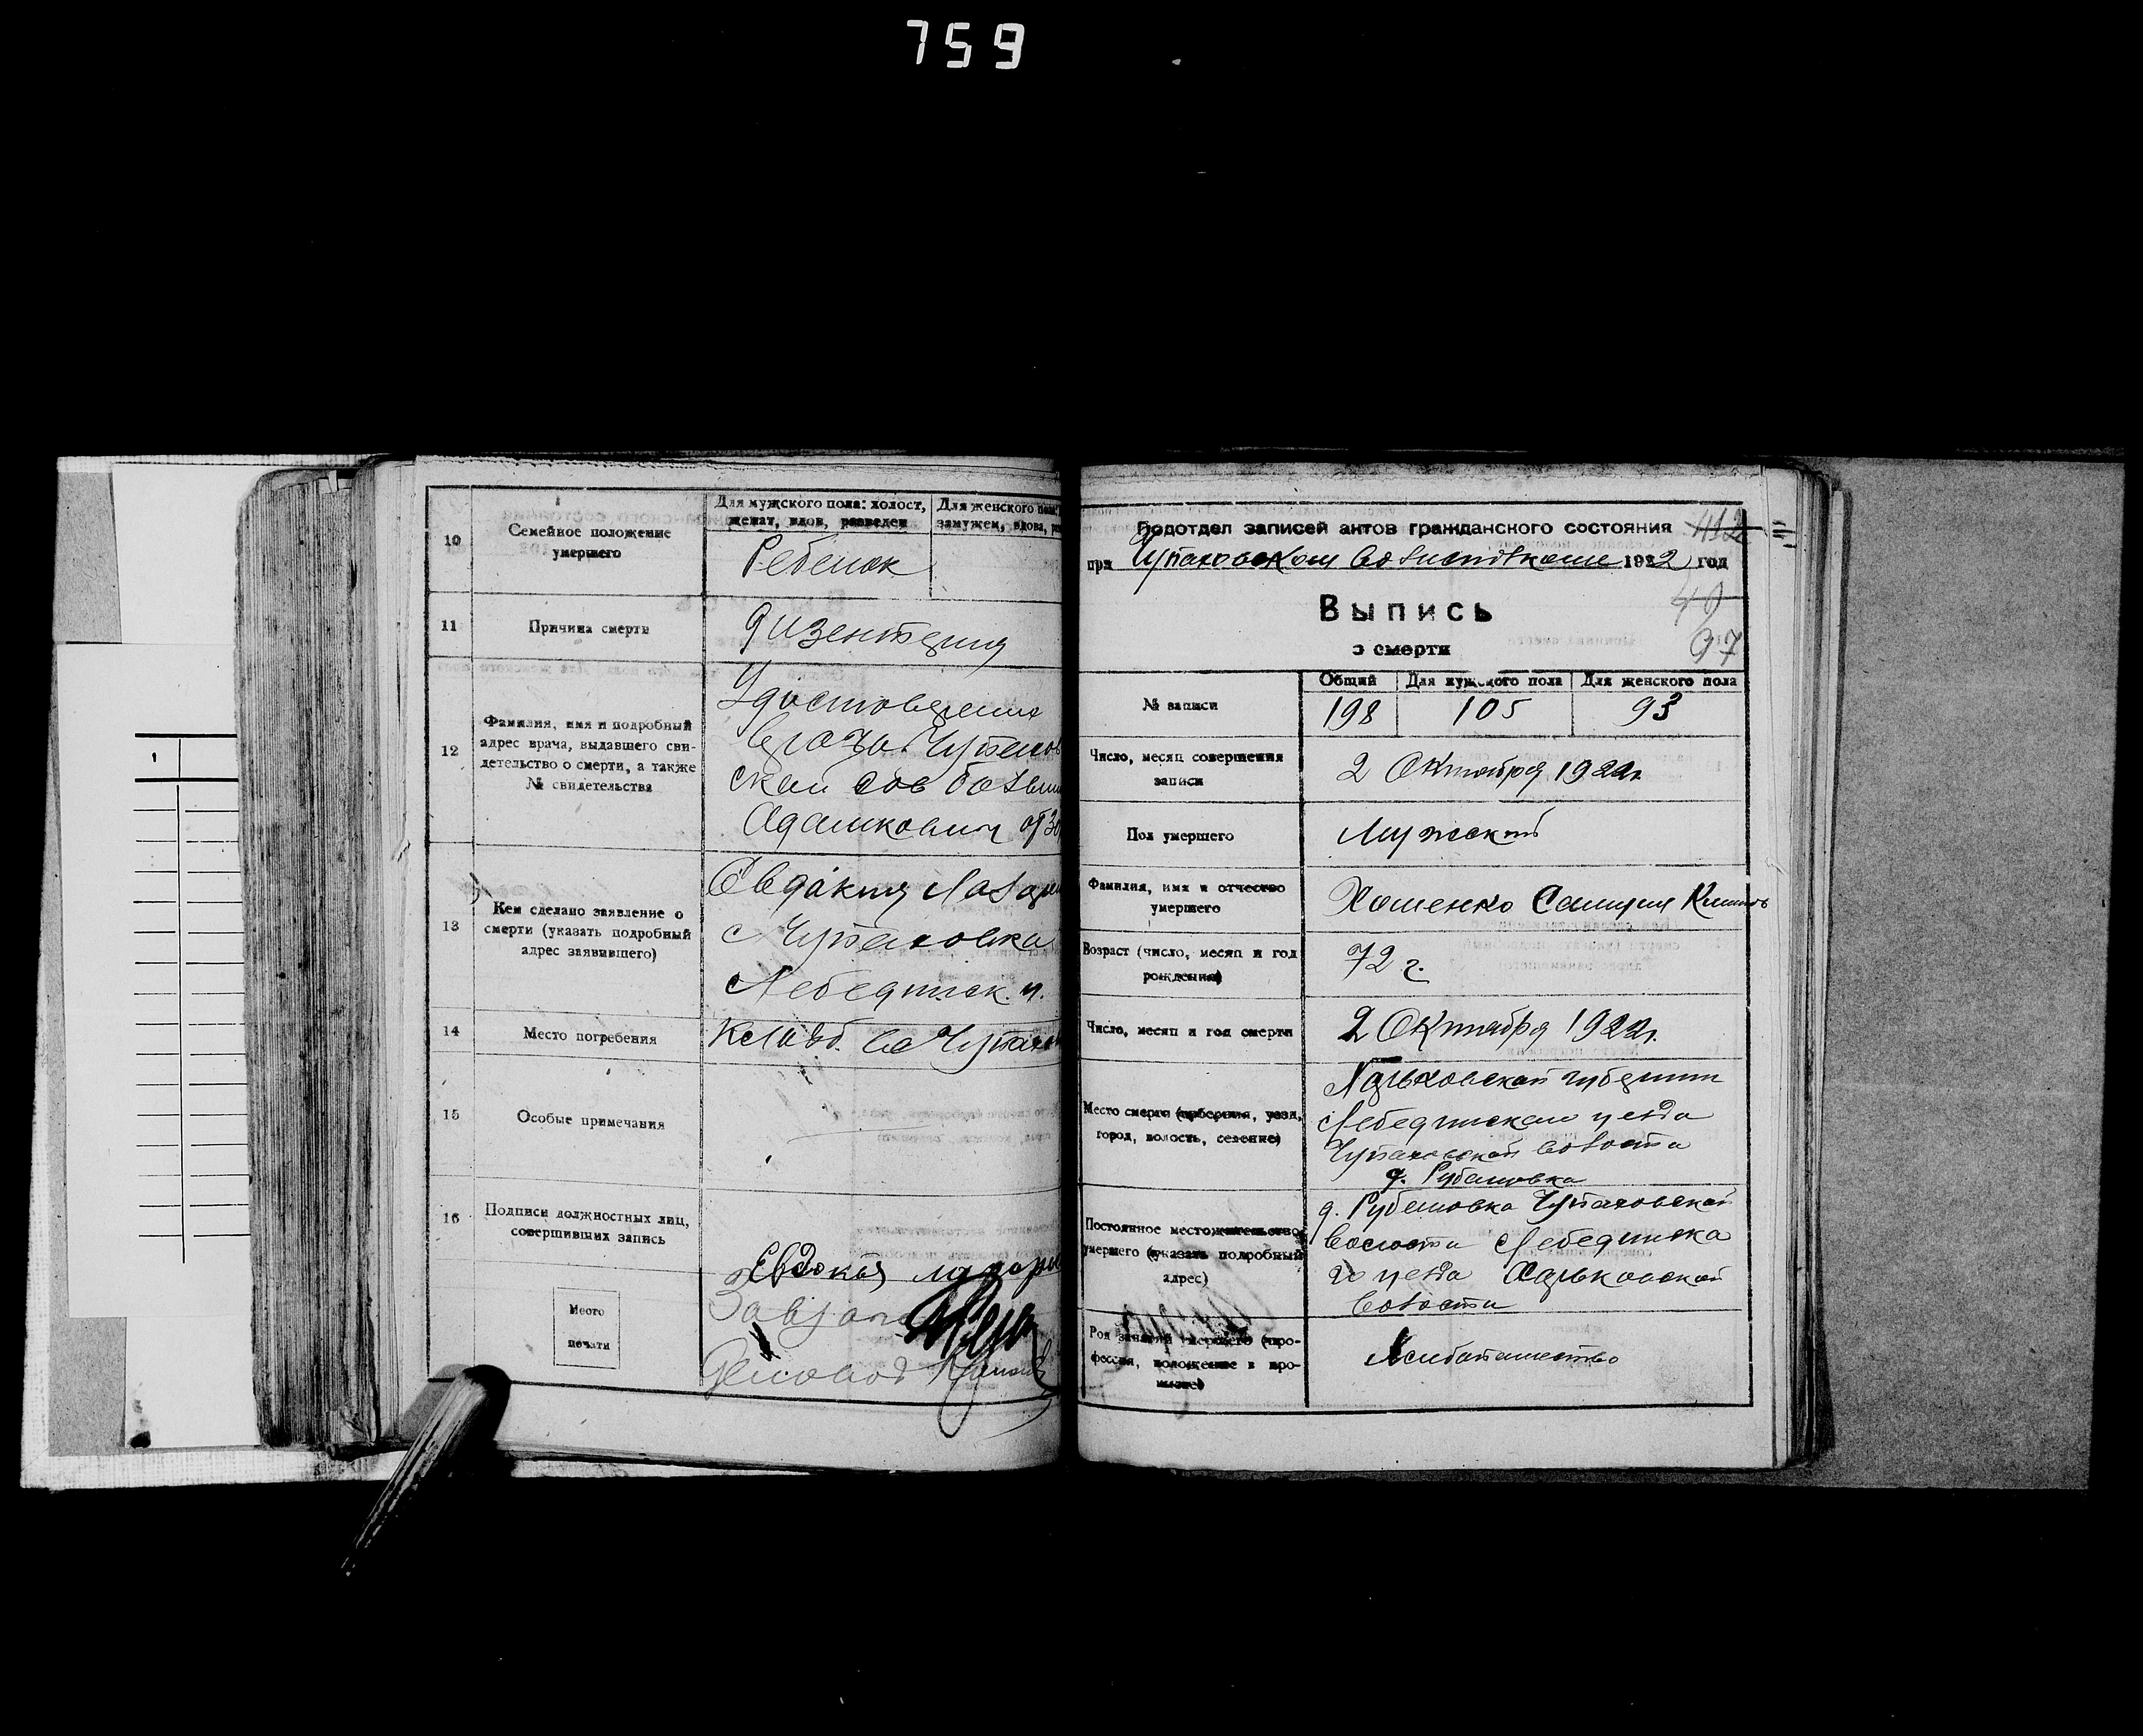 759
10
Семейное положение
умершего
Для мужского пола: холост,
женат, вдов, разведен
Для женского пола:
замужем, вдова,
Ребенок
11
Причина смерти
дизентерия
12
Фамилия, имя и подробный
адрес врача, выдавшего сви-
детельство о смерти, а также
№ свидетельства
Удостоверение
врача Чупахов
ской сов больни
Адамкович от 30
13
Кем сделано заявление о
смерти (указать подробный
адрес заявившего)
Евдокия Лазар
с Чупаховка
Лебединск. у.
14
Место погребения
Кладб. с Чупахов
15
Особые примечания
16
Подписи должностных лиц,
совершивших запись
Евдокия Лазар
Место
печати
Подотдел записей актов гражданского состояния
412
при Чупаховском волисполкоме 1922 год
Выпись
о смерти
97
№ записи
Общий
Для мужского пола
Для женского пола
198
105
93
Число, месяц совершения
записи
2 Октября 1922г.
Пол умершего
Мужской
Фамилия, имя и отчество
умершего
Хоменко
Возраст (число, месяц и год
рождения)
72 г.
Число, месяц и год смерти
2 Октября 1922г.
Место смерти (губерния, уезд,
город, волость, селение)
Харьковской губернии
Лебединского уезда
Чупаховской волости
д. Рубановка
Постоянное местожительство
умершего (указать подробный
адрес)
д. Рубановка Чупаховской
волости Лебединска
го уезда Харьковской
волости
Род занятий умершего (про-
фессия, положение в про-
мысле)
Хлебопашество